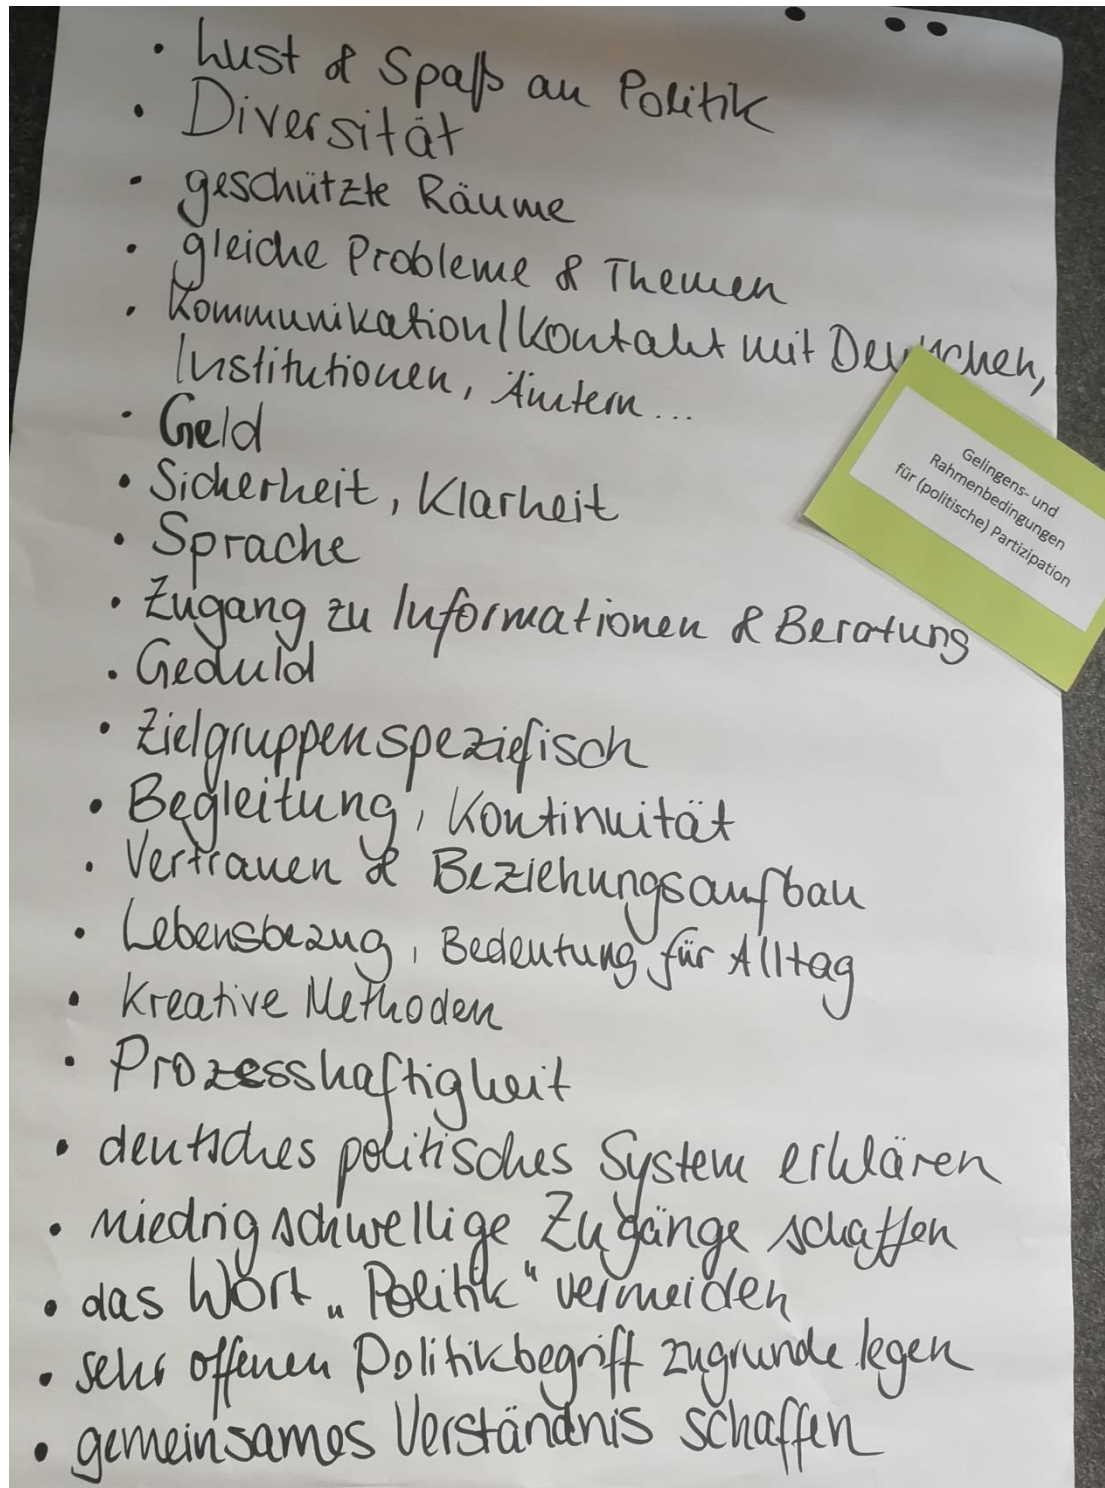 • Lust & Spaß an Politik
• Diversität
• geschützte Räume
• gleiche Probleme & Themen
• Kommunikation/Kontakt mit Deutschen,
Institutionen, Ämtern...
• Geld
• Sicherheit, Klarheit
• Sprache
• Zugang zu Informationen & Beratung
• Geduld
• Zielgruppenspezifisch
• Begleitung, Kontinuität
• Vertrauen & Beziehungsaufbau
• Lebensbezug, Bedeutung für Alltag
• Kreative Methoden
• Prozesshaftigkeit
• deutsches politisches System erklären
• niedrigschwellige Zugänge schaffen
• das Wort „Politik“ vermeiden
• sehr offenen Politikbegriff zugrunde legen
• gemeinsames Verständnis schaffen
Gelingens- und
Rahmenbedingungen
für (politische) Partizipation